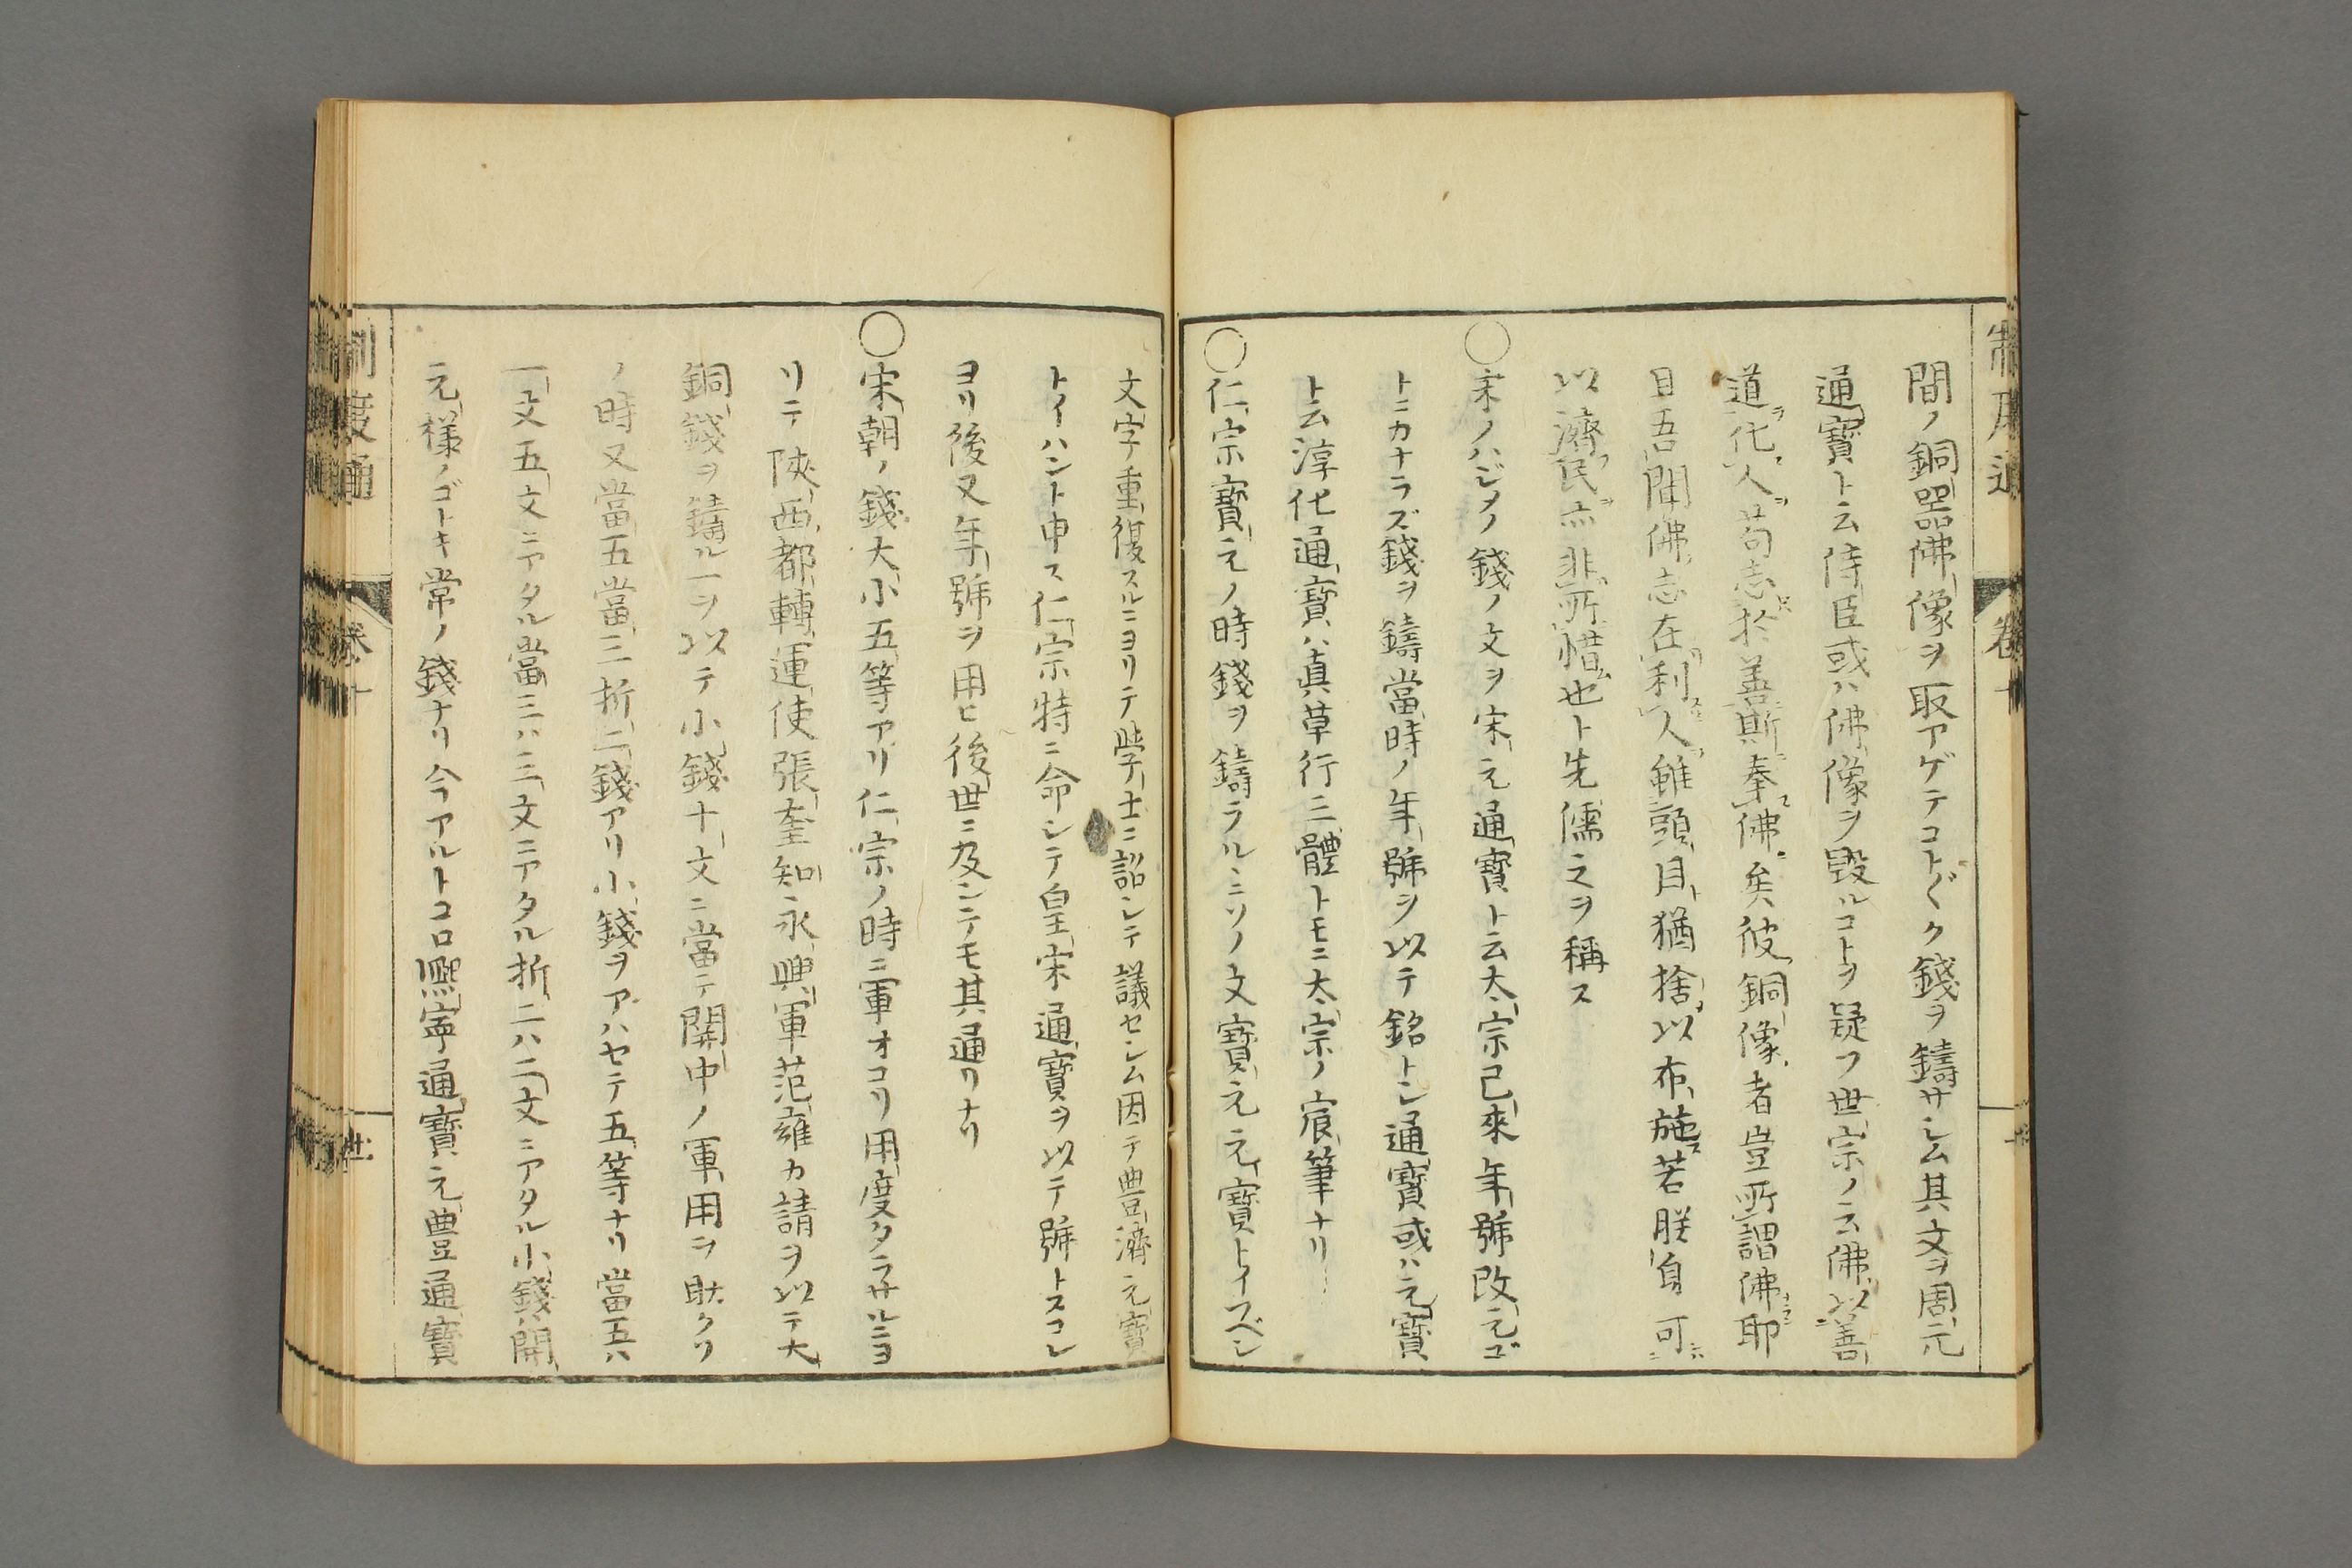 間ノ銅器佛像ヲ取アゲテコト〴〵ク錢ヲ鑄サシム其文ヲ周元
通寶ト云侍臣或ハ佛像ヲ毀ルコトヲ疑フ世宗ノ云佛以善
道化人苟志於善斯奉佛矣彼銅像者豈所謂佛耶
且吾聞佛志在利人雖頭目猶捨以布施若朕身可
以濟民亦非所惜也ト先儒之ヲ稱ス
○宋ノハジメノ錢ノ文ヲ宋元通寶ト云太宗已來年號改元ゴ
トニカナラズ錢ヲ鑄當時ノ年號ヲ以テ銘トシ通寶或ハ元寶
ト云淳化通寶ハ真草行三體トモニ太宗ノ宸筆ナリ
○仁宗寶元ノ時錢ヲ鑄ラルニソノ文寶元元寶トイフベシ
文字重復スルニヨリテ學士ニ詔シテ議セシム因テ豊濟元寶
トイハント申ス仁宗特ニ命シテ皇宋通寶ヲ以テ號トスコレ
ヨリ後又年號ヲ用ヒ後世ニ及シテモ其通リナリ
○宋朝ノ錢大小五等アリ仁宗ノ時ニ軍オコリ用度タラサルニヨ
リテ陝西都轉運使張奎知永興軍范雍カ請ヲ以テ大
銅錢ヲ鑄ル一ヲ以テ小錢十文ニ當テ関中ノ軍用ヲ助クソ
ノ時又當五當三折二錢アリ小錢ヲアハセテ五等ナリ當五ハ
一文五文ニアタル當三ハ三文ニアタル折二ハ二文ニアタル小錢ハ開
元樣ノゴトキ常ノ錢ナリ今アルトコロ熈寧通寶元豊通寶
制度通
卷十